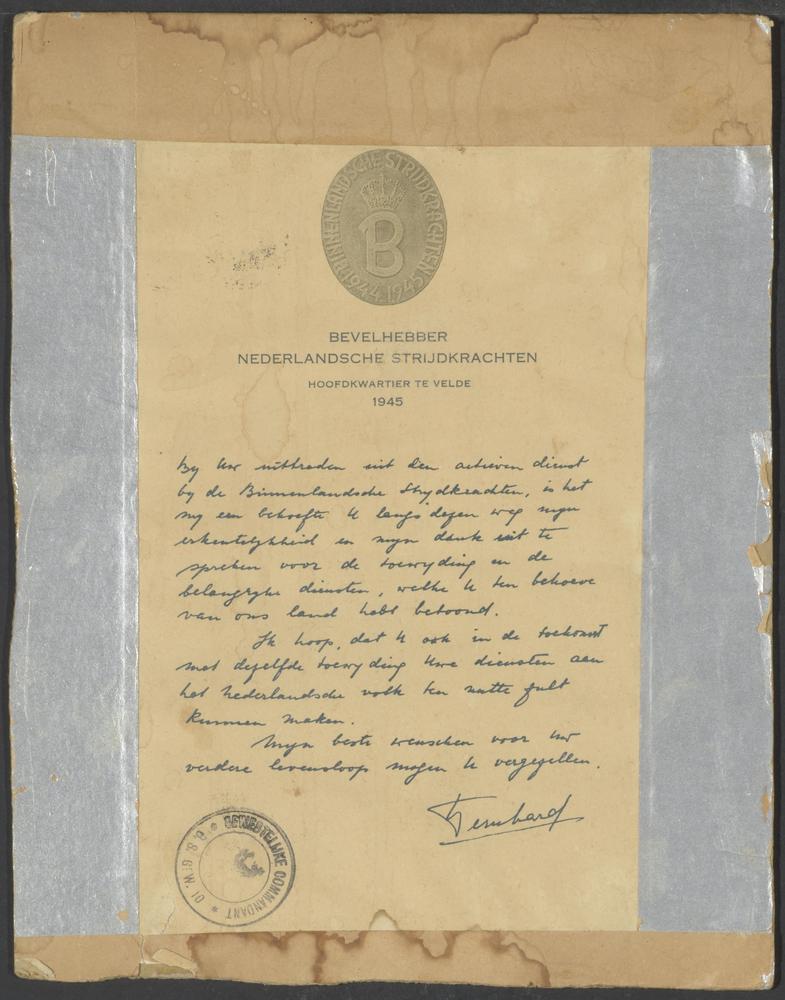 BINNENLANDSCHE STRIJDKRACHTEN
B
1944-1945
BEVELHEBBER
NEDERLANDSCHE STRIJDKRACHTEN
HOOFDKWARTIER TE VELDE
1945
By Uw uittreden uit den actieven dienst
by de Binnenlandsche Strydkrachten, is het
my een behoefte U langs dezen weg myn
erkentelykheid en myn dank uit te
spreken voor de toewyding en de
belangryke diensten, welke U ten behoeve
van ons land hebt betoond.
Ik hoop, dat U ook in de toekomst
met dezelfde toewyding Uwe diensten aan
het Nederlandsche volk ten nutte zult
kunnen maken.
Myn beste wenschen voor Uw
verdere levensloop mogen U vergezellen.
Bernhard
GEWESTELIJKE COMMANDANT